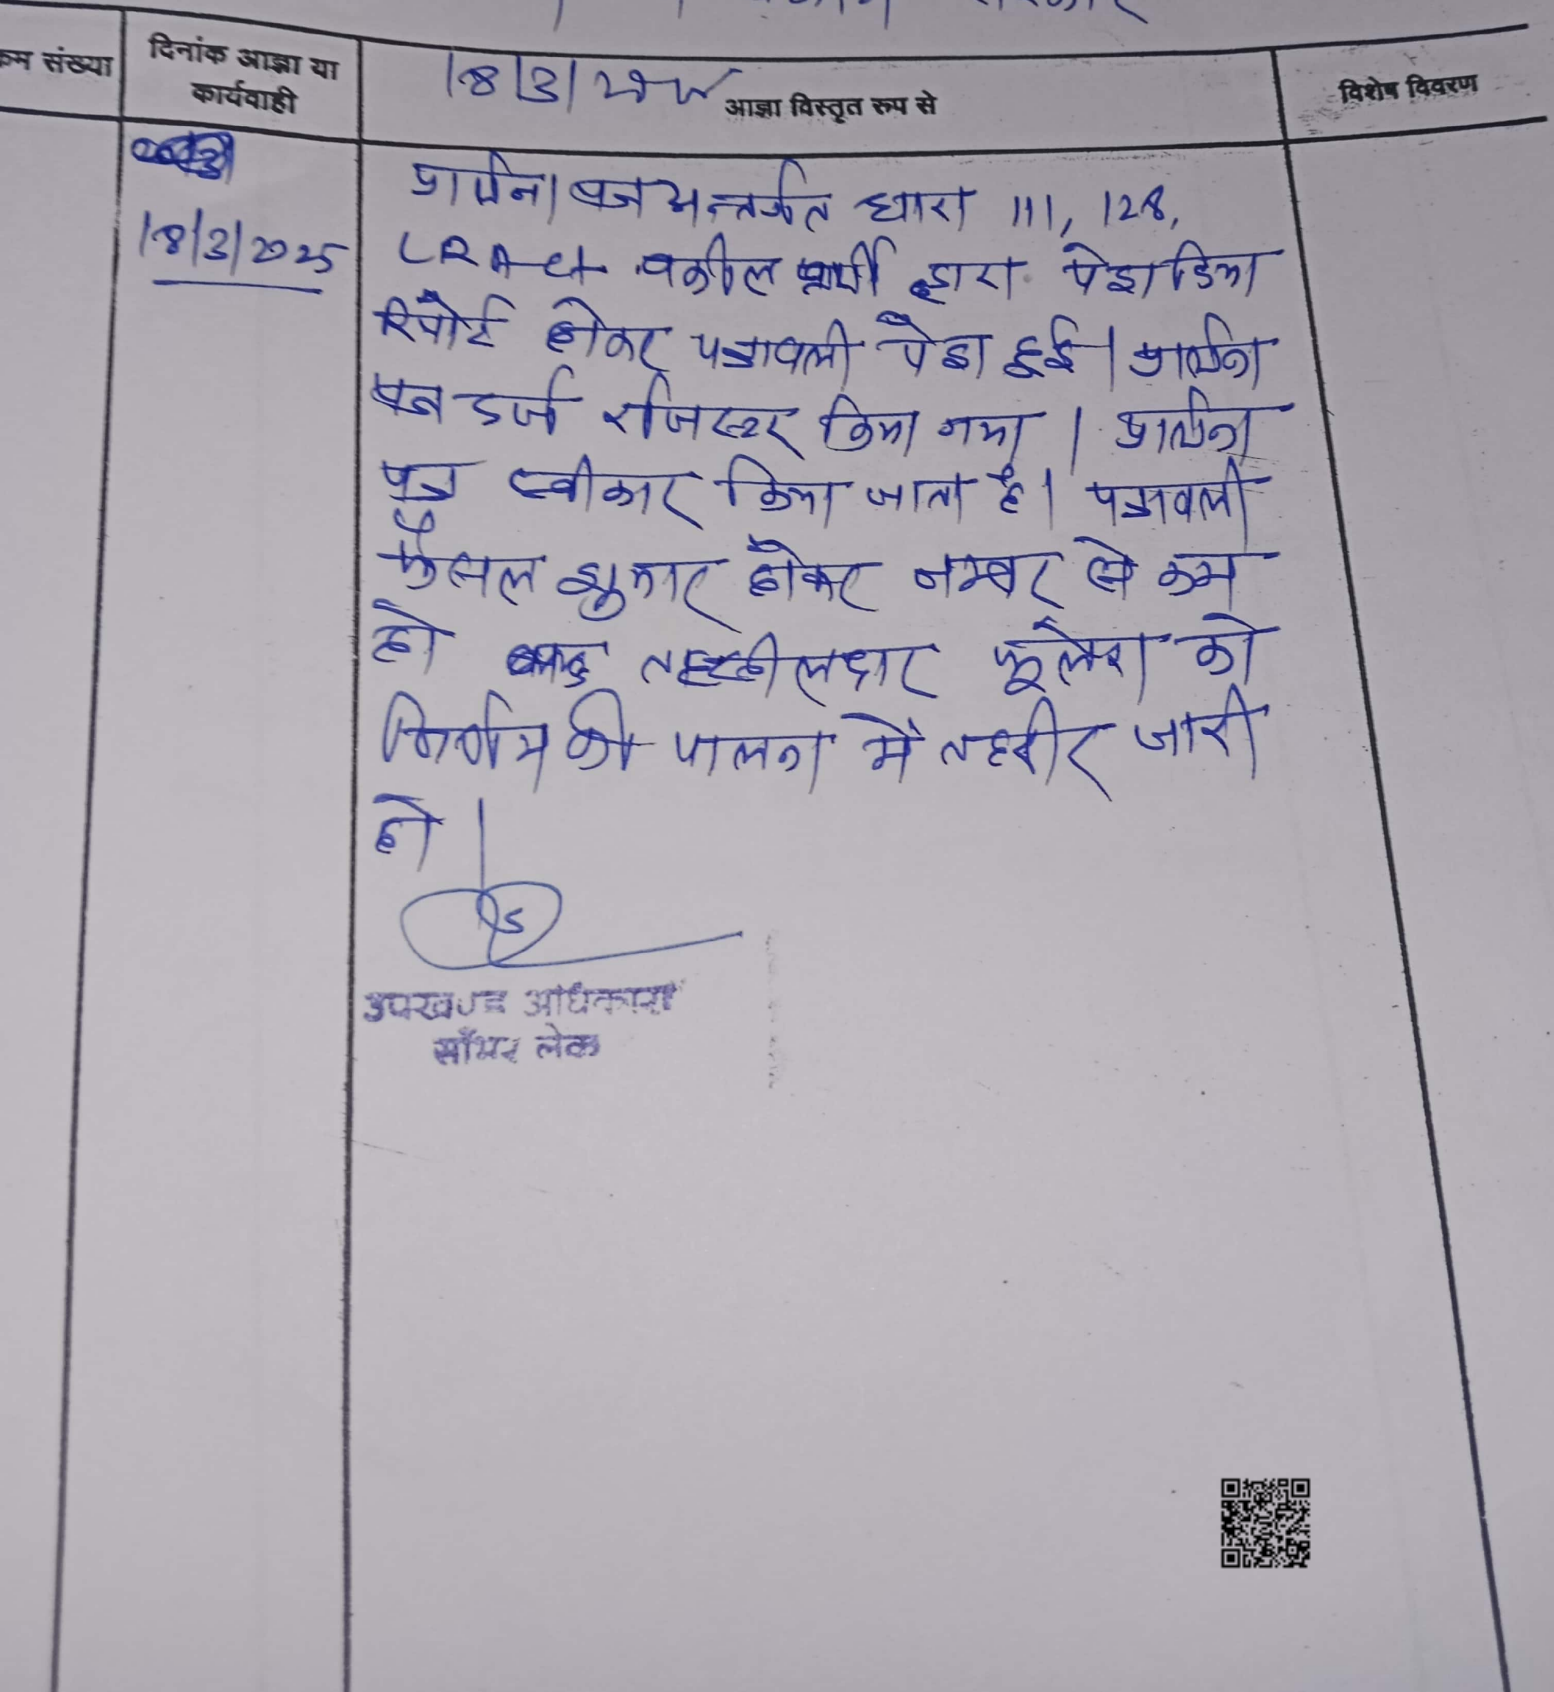 क्रम संख्या
दिनांक आज्ञा या
कार्यवाही
18/3/2025
आज्ञा विस्तृत रूप से
विशेष विवरण
18/3/2025
प्रार्थना पत्र अन्तर्गत धारा 111, 128,
LR Act वकील प्रार्थी द्वारा पेश किया
रिपोर्ट होकर पत्रावली पेश हुई। प्रार्थना
पत्र दर्ज रजिस्टर किया गया। प्रार्थना
पत्र स्वीकार किया जाता है। पत्रावली
फैसल शुमार होकर नम्बर से कम
हो तहसीलदार फुलेरा को
निर्णय की पालना में तहरीर जारी
हो।
उपखण्ड अधिकारी
साँभर लेक